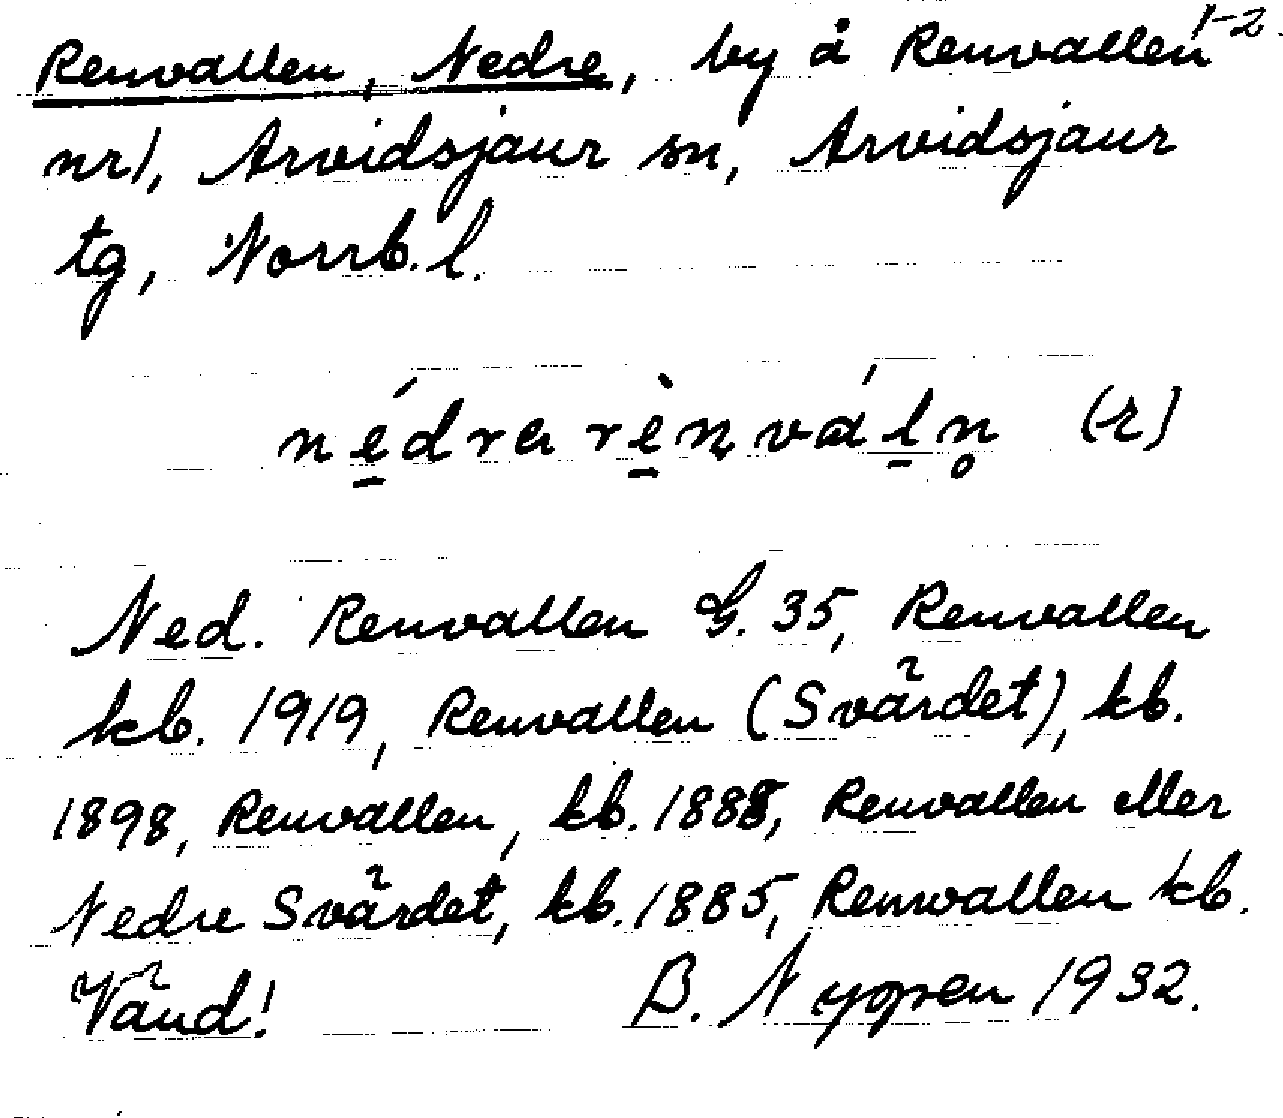 Renvallen, Nedre, by å Renvallen 1-2
nr), Arvidsjaur sn, Arvidsjaur
tg, Norrb. l.
nédra rènváln̥ (r)
Ned. Renvallen G. 35, Renvallen
kb. 1919, Renvallen (Svärdet), kb.
1898, Renvallen, kb. 1888, Renvallen eller
Nedre Svärdet, kb. 1885, Renwallen kb.
Vänd! B. Nygren 1932.